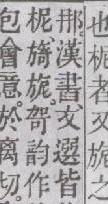 也柅者又旎之
挪漢書文選皆
柅旖旎哿韵作
包會意於離切